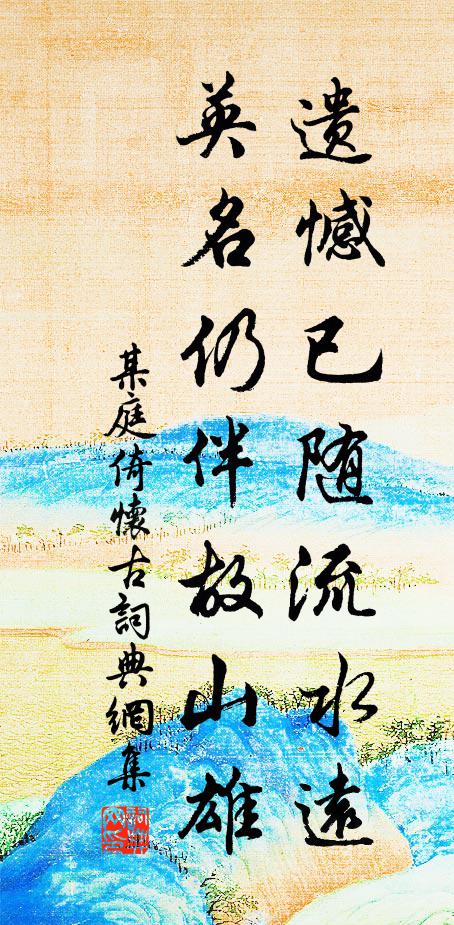 遗憾已随流水遠
英名仍伴故山雄
某庭倚懷古詞典網集